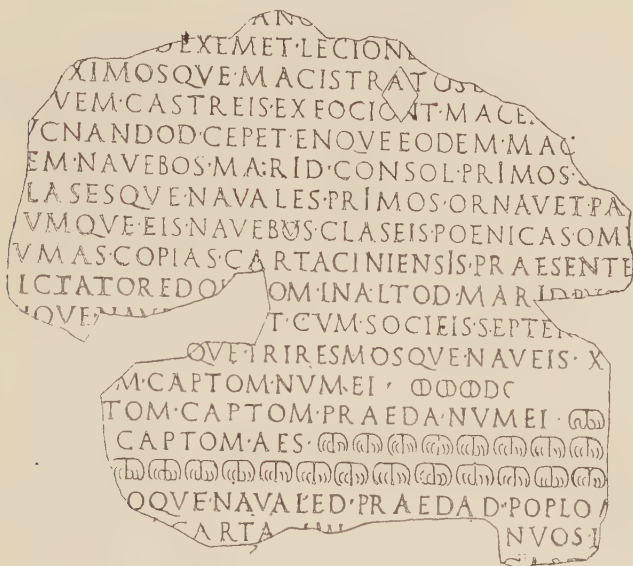 ANO
D·EXEMET·LECIONE
XIMOSQVE·MACISTRATOS
VEM·CASTREIS·EXFOCIONT·MACE
VCNANDOD·CEPET·ENQVE EODEM·MAC
EM·NAVEBOS·MARID·CONSOL·PRIMOS·
LASESQVE·NAVALES·PRIMOS·ORNAVET·PA
VMQVE·EIS·NAVEBOS·CLASEIS·POENICAS·OM
VMAS·COPIAS·CARTACINIENSIS·PRAESENTE
ICTATORED OM·INALTOD·MARID
QVE·NAVE T·CVM·SOCIEIS·SEPTE
QVE·TRIRESMOSQVE·NAVEIS·X
M·CAPTOM·NVMEI· ↀↀↀDC
TOM·CAPTOM·PRAEDA·NVMEI·ↈ
CAPTOM·AES·ↈↈↈↈↈↈↈↈ
ↈↈↈↈↈↈↈↈↈↈↈↈ
OQVE·NAVALED·PRAEDAD·POPLO
CARTA NVOS·